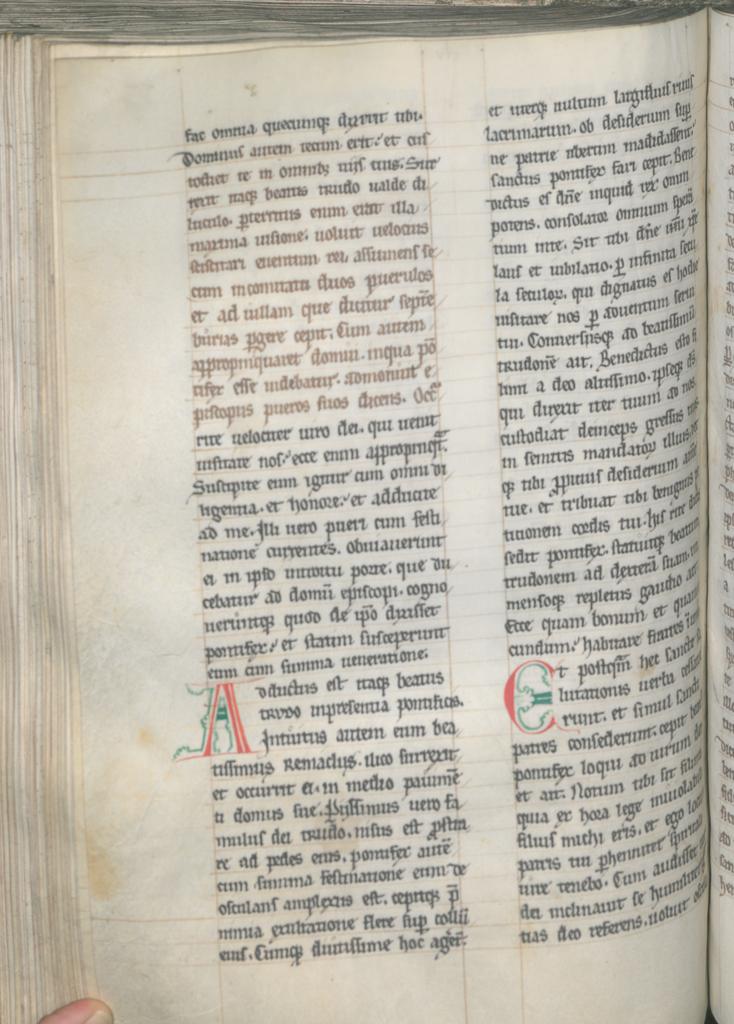 fac omnia quecumq; dixerit tibi.
Dominus autem tecum erit. et cus
todiet te in omnib; uiis tuis. Sur
rexit itaq; beatus trudo ualde di
luculo. pterritus enim erat illa
maxima uisione. uoluit uelocius
sciscitari euentum rei. assumens se
cum in comitatu duos puerulos
et ad uillam que dicitur septe
burias pgere cepit. Cum autem
appropinquaret domui. in qua po
tifex esse uidebatur. admonuit e
piscopus pueros suos dicens. Occ
rite uelociter uiro dei. qui uenit
uisitare nos. ecce enim appropinqt.
Suscipite eum igitur cum omni di
ligentia. et honore. et adducite
ad me. Illi uero pueri cum festi
natione currentes. obuiauerunt
ei in ipso introitu porte. que du
cebatur ad domu episcopi. cogno
ueruntq; quod de ipo dixisset
pontifex. et statim susceperunt
eum cum summa ueneratione.
Adductus est itaq; beatus
trudo in presentia pontificis.
Intuitus autem eum bea
tissimus Remaclus. ilico surrexit
et occurrit ei in medio pauime
ti domus sue. Piissimus uero fa
mulus dei trudo. nisus est pstra
re ad pedes eius. pontifex aute
cum summa festinatione eum de
osculans amplexus est. cepitq; p
nimia exultatione flere sup collu
eius. Cumq; diutissime hoc agert.
et uterq; uultum largifluis riuis
lacrimarum. ob desiderium sup
ne patrie ubertim madidassent.
sanctus pontifex fari cepit. Bene
dictus es dne inquid rex omni
potens. consolator omnium spera
tium in te. Sit tibi dne ihu xpe
laus et iubilatio. p infinita secu
la seculor. qui dignatus es hodie
uisitare nos p aduentum serui
tui. Conuersusq; ad beatissimu
trudone ait. Benedictus esto fi
limi a deo altissimo. ipseq; ds
qui direxit iter tuum ad nos.
custodiat deinceps gressus tuos
in semitis mandator illius. det
q; tibi ppicius desiderium anime
tue. et tribuat tibi benignus pe
titionem cordis tui. His rite dictis
sedit pontifex. statuitq; beatum
trudonem ad dextera suam.
mensoq; repletus gaudio ait
Ecce quam bonum et quam
cundum. habitare fratres in unu
Et postqm hec sancte sa
lutationis uerba cessaue
runt. et simul sancti
patres consederunt. cepit beatus
pontifex loqui ad uirum dei
et ait. Notum tibi sit fili mi
quia ex hora lege inuiolabili
filius michi eris. et ego loco
patris tui phenniter spirituali
iure tenebo. Cum audisset
dei inclinauit se humiliter
tias deo referens. uoluit